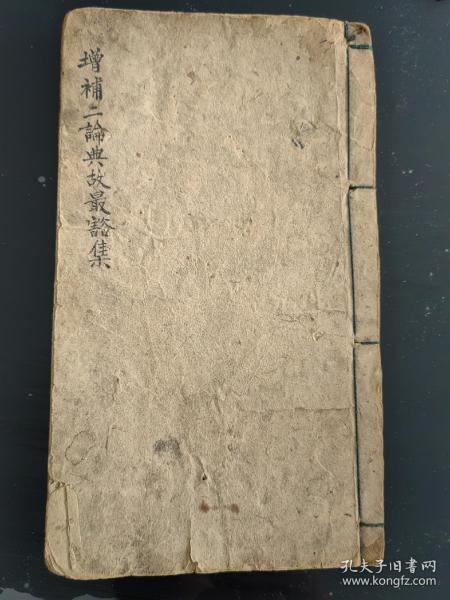 增補二論典故最豁集
孔夫子旧书网
www.kongfz.com